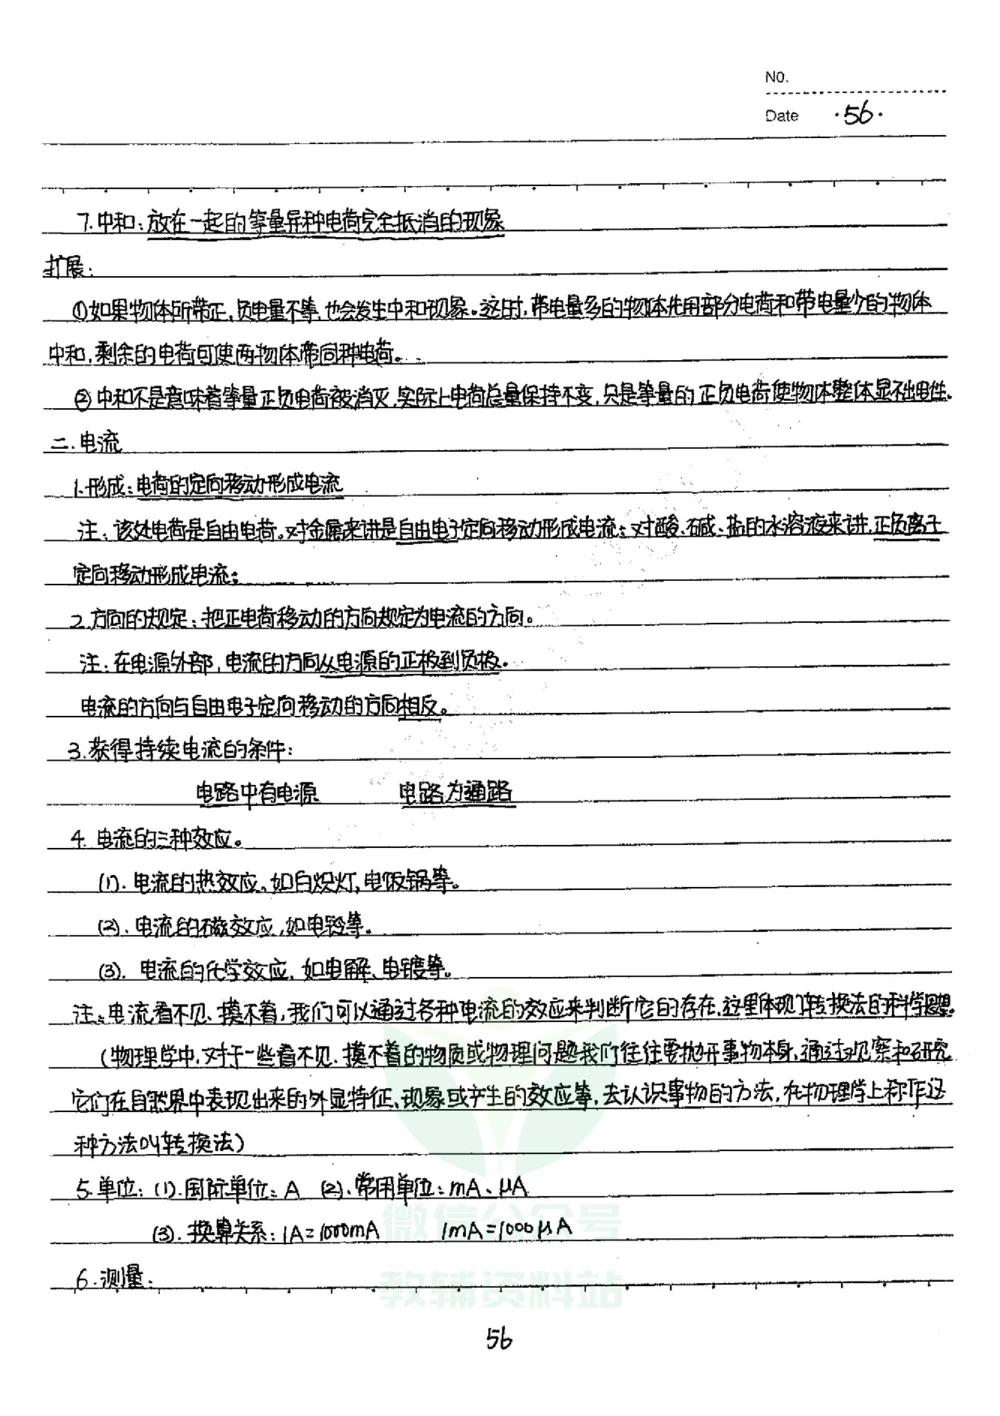 NO.
Date ·56·
7.中和:放在一起的等量异种电荷完全抵消的现象
扩展:
①如果物体所带正、负电量不等,也会发生中和现象。这时,带电量多的物体先用部分电荷和带电量少的物体
中和,剩余的电荷可使两物体带同种电荷。
②中和不是意味着等量正负电荷被消灭,实际上电荷总量保持不变,只是等量的正负电荷使物体整体显不出电性。
二.电流
1.形成:电荷的定向移动形成电流
注:该处电荷是自由电荷。对金属来讲是自由电子定向移动形成电流;对酸、碱、盐的水溶液来讲,正负离子
定向移动形成电流;
2.方向的规定:把正电荷移动的方向规定为电流的方向。
注:在电源外部,电流的方向从电源的正极到负极。
电流的方向与自由电子定向移动的方向相反。
3.获得持续电流的条件:
电路中有电源 电路为通路
4.电流的三种效应。
(1).电流的热效应。如白炽灯,电饭锅等。
(2).电流的磁效应,如电铃等。
(3).电流的化学效应,如电解、电镀等。
注:电流看不见、摸不着,我们可以通过各种电流的效应来判断它的存在,这里体现了转换法的科学思想。
(物理学中,对于一些看不见、摸不着的物质或物理问题我们往往要抛开事物本身,通过观察和研究
它们在自然界中表现出来的外显特征、现象或产生的效应等,去认识事物的方法,在物理学上称作这
种方法叫转换法)
5.单位:(1).国际单位:A (2).常用单位:mA、μA
(3).换算关系:1A=1000mA 1mA=1000μA
6.测量:
微信公众号
教辅资料站
56